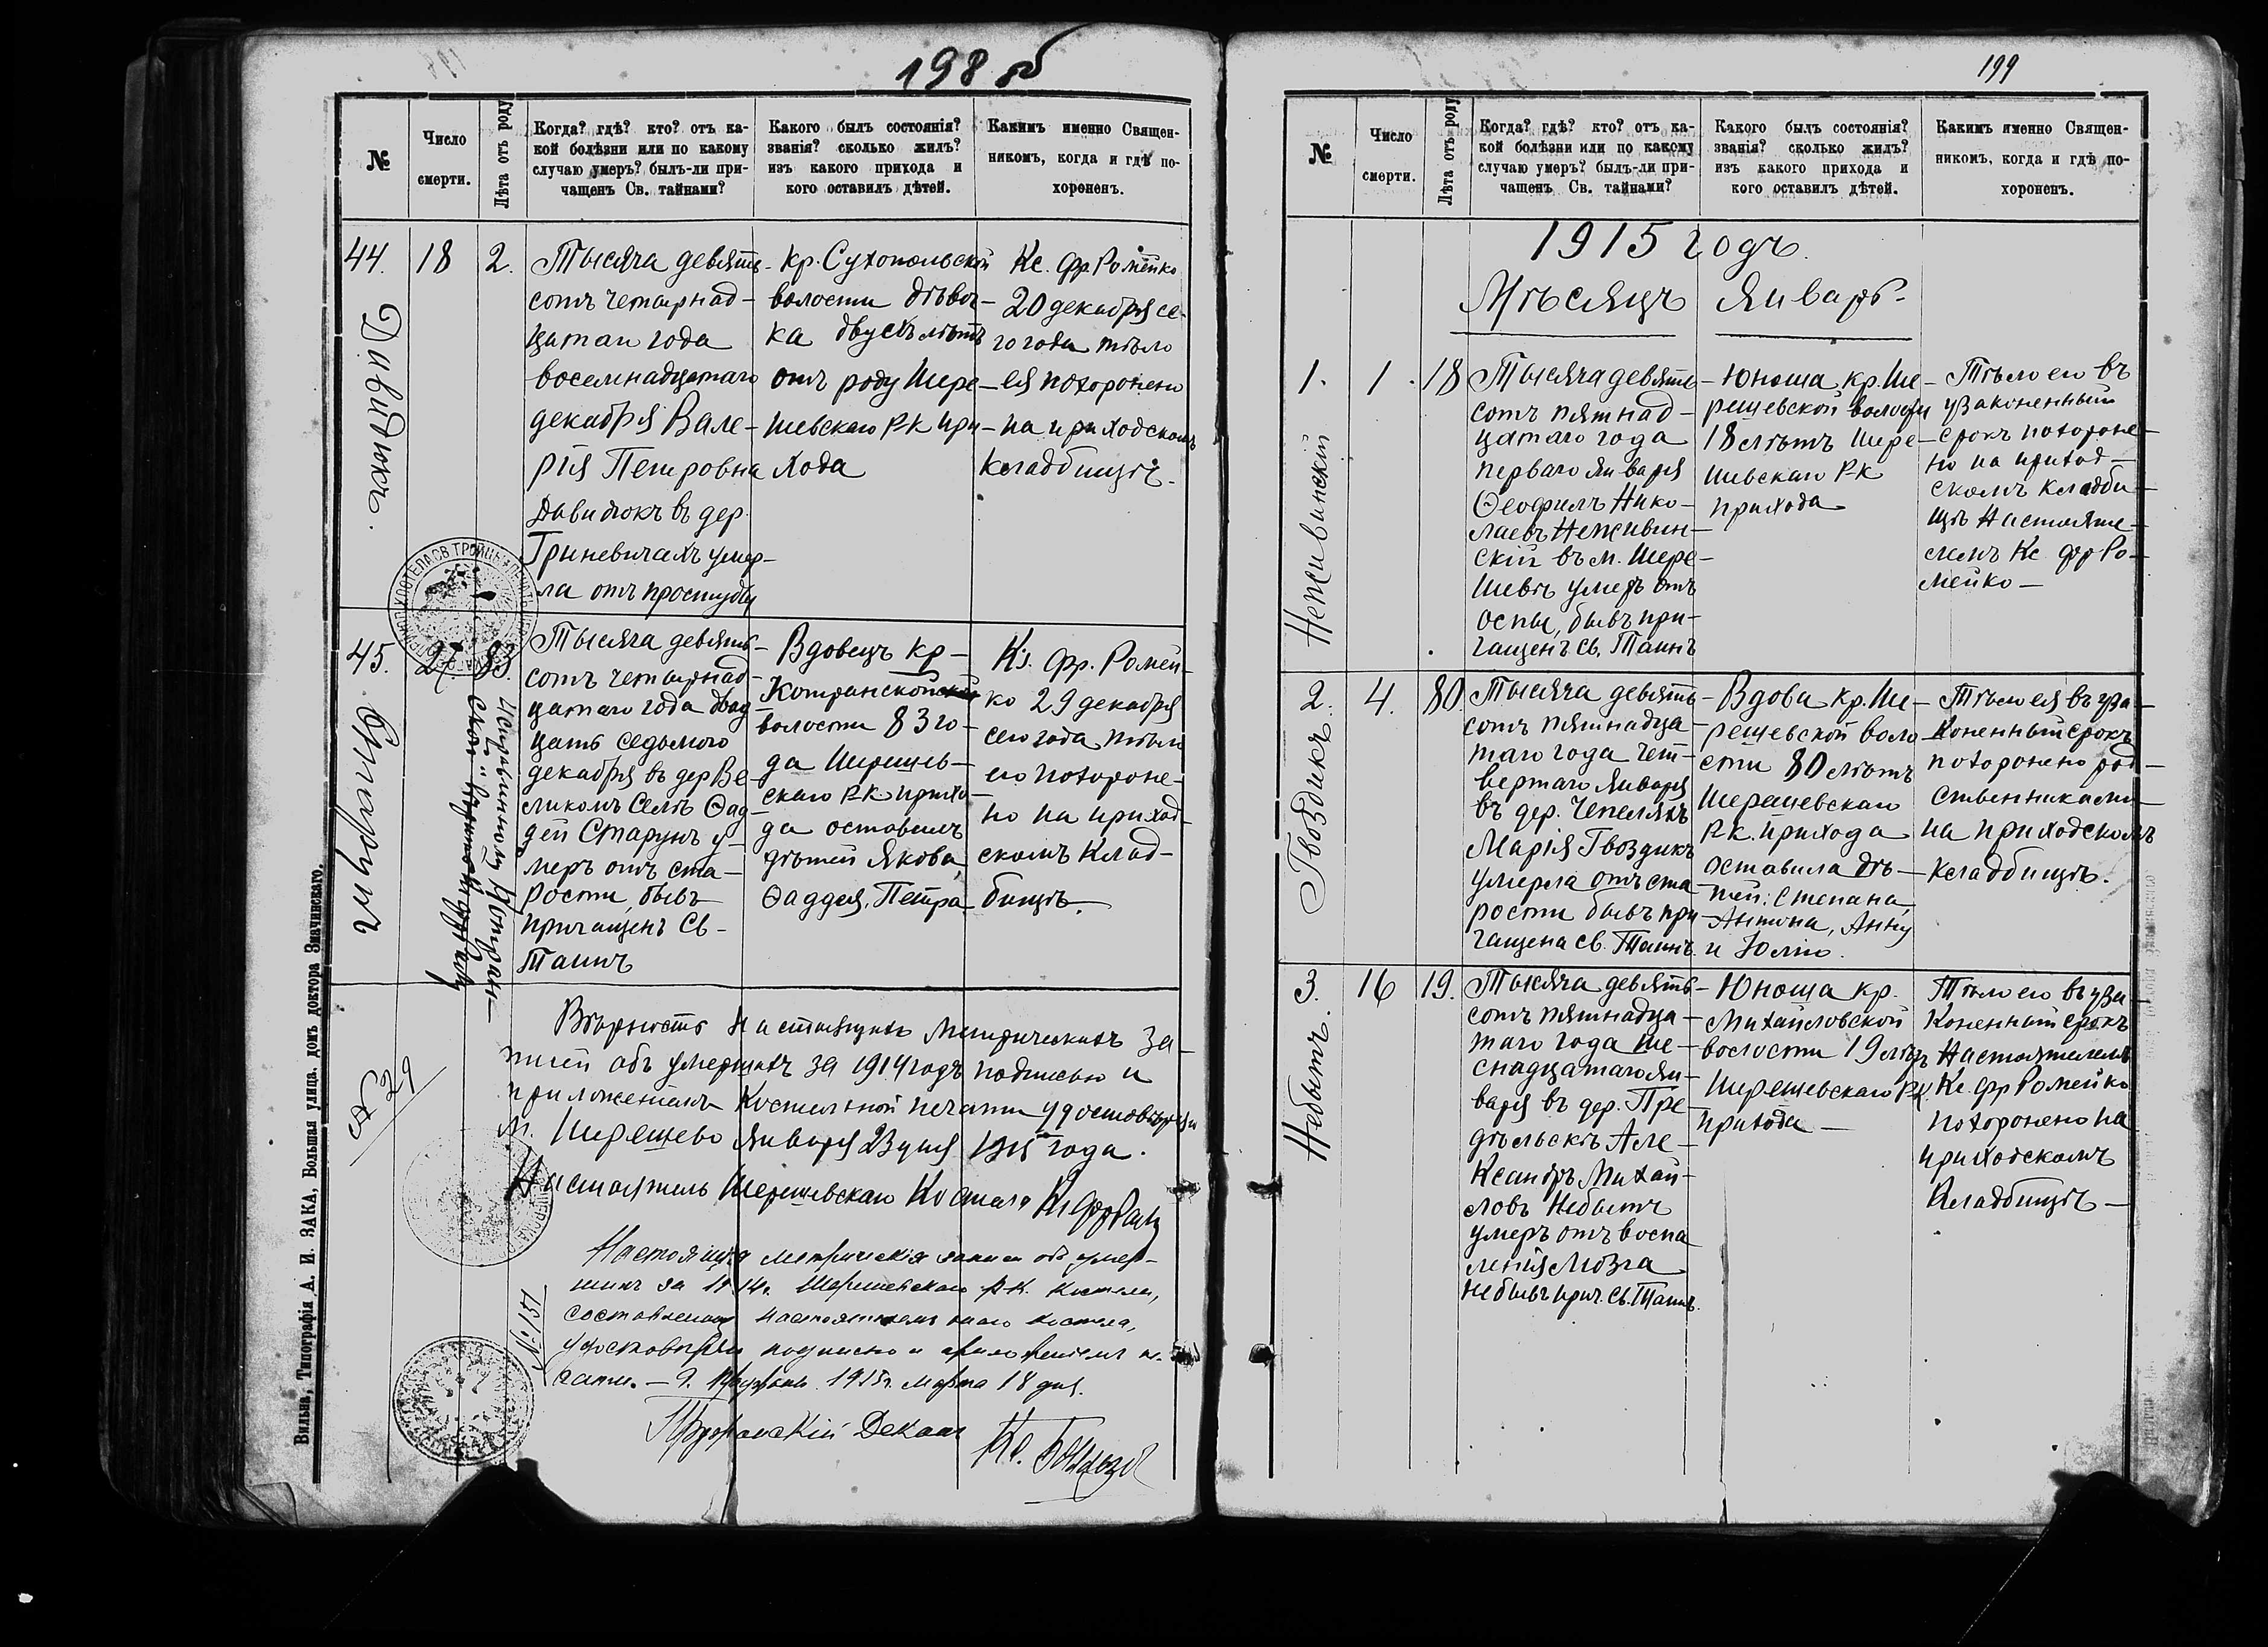 198 об
№
Число
смерти.
Лѣта отъ роду
Когда? гдѣ? кто? отъ ка-
кой болѣзни или по какому
случаю умеръ? былъ-ли при-
чащенъ Св. тайнами?
Какого былъ состоянія?
званія? сколько жилъ?
изъ какого прихода и
кого оставилъ дѣтей.
Какимъ именно Священ-
никомъ, когда и гдѣ по-
хороненъ.
44.
Давидюкъ.
18
2.
Тысяча девять-
сотъ четырнад-
цатаго года
восемнадцатаго
декабря Вале-
рія Петровна
Давидюкъ въ дер.
Гриневичахъ умер-
ла отъ простуды
кр. Сухопольской
волости дѣвоч-
ка двухъ лѣтъ
отъ роду Шере-
шевскаго Р-К при-
хода
Кс. Фр. Ромейко
20 декабря се-
го года тѣло
ея похоронено
на приходскомъ
кладбищѣ.
45.
Старунъ
27
83.
Тысяча девять-
сотъ четырнад-
цатаго года двад-
цать седьмого
декабря въ дер Ве-
ликомъ Селѣ Фад-
дей Старунъ у-
меръ отъ ста-
рости, бывъ
причащенъ Св-
Таинъ
Вдовецъ кр-
Котранской
волости 83 го-
да Шерешев-
скаго Р-К прихо-
да оставилъ
дѣтей Якова,
Фаддея, Петра
Кс. Фр. Ромей-
ко 29 декабря
сего года тѣло
его похороне-
но на приход-
скомъ клад-
бищѣ.
Исправленному Котран-
ской
Вѣрность настоящихъ метрическихъ за-
писей объ умершихъ за 1914 годъ подписью и
приложеніемъ костельной печати удостовѣряю
м. Шерешево Января 23 дня 1915 года.
Настоятель Шерешевскаго Костела Кс Фр Ром
Настоящія метрическія записи объ умер-
шихъ за 1914 г. Шерешевскаго Р-К. Костела,
составленныя настоятелемъ сего костела,
удостовѣряю подписью и приложеніемъ пе-
чати. — г. Пружаны 1915 г. Марта 18 дня.
№ 151
Пружанскій Деканъ
Вильна, Типографія А. И. ЗАКА, Большая улица, домъ доктора Значинскаго.
199
№
Число
смерти.
Лѣта отъ роду
Когда? гдѣ? кто? отъ ка-
кой болѣзни или по какому
случаю умеръ? былъ-ли при-
чащенъ Св. тайнами?
Какого былъ состоянія?
званія? сколько жилъ?
изъ какого прихода и
кого оставилъ дѣтей.
Какимъ именно Священ-
никомъ, когда и гдѣ по-
хороненъ.
1915 годъ.
Мѣсяцъ Январь.
1.
Неживинскій
1.
18
Тысяча девять-
сотъ пятнад-
цатаго года
перваго января
Феофилъ Нико-
лаевъ Неживин-
скій въ м. Шере-
шевѣ умеръ отъ
оспы, бывъ при-
чащенъ Св. Таинъ
Юноша кр. Ше-
решевской волости
18 лѣтъ Шере-
шевскаго Р-К
прихода
Тѣло его въ
узаконенный
срокъ похороне-
но на приход-
скомъ кладби-
щѣ Настояте-
лемъ Кс Фр Ро-
мейко —
2.
Гвоздикъ
4.
80
Тысяча девять-
сотъ пятнадца-
таго года чет-
вертаго Января
въ дер. Чепеляхъ
Марія Гвоздикъ
умерла отъ ста-
рости бывъ при-
чащена Св. Таинъ
Вдова кр. Ше-
решевской воло-
сти 80 лѣтъ
Шерешевскаго
Р-К. прихода
оставила дѣ-
тей: Степана,
Антона, Анну
и Юлію.
Тѣло ея въ уза-
коненный срокъ
похоронено род-
ственниками
на приходскомъ
кладбищѣ.
3.
Небытъ.
16
19.
Тысяча девять-
сотъ пятнадца-
таго года ше-
снадцатаго Ян-
варя въ дер. Пре-
дѣльскѣ Але-
ксандръ Михай-
ловъ Небытъ
умеръ отъ воспа
ленія мозга
не бывъ прич. Св. Таинъ.
Юноша кр.
Михайловской
волости 19 лѣтъ
Шерешевскаго Р-К.
прихода —
Тѣло его въ уза-
коненный срокъ
Настоятелемъ
Кс. Фр Ромейко
похоронено на
приходскомъ
кладбищѣ —